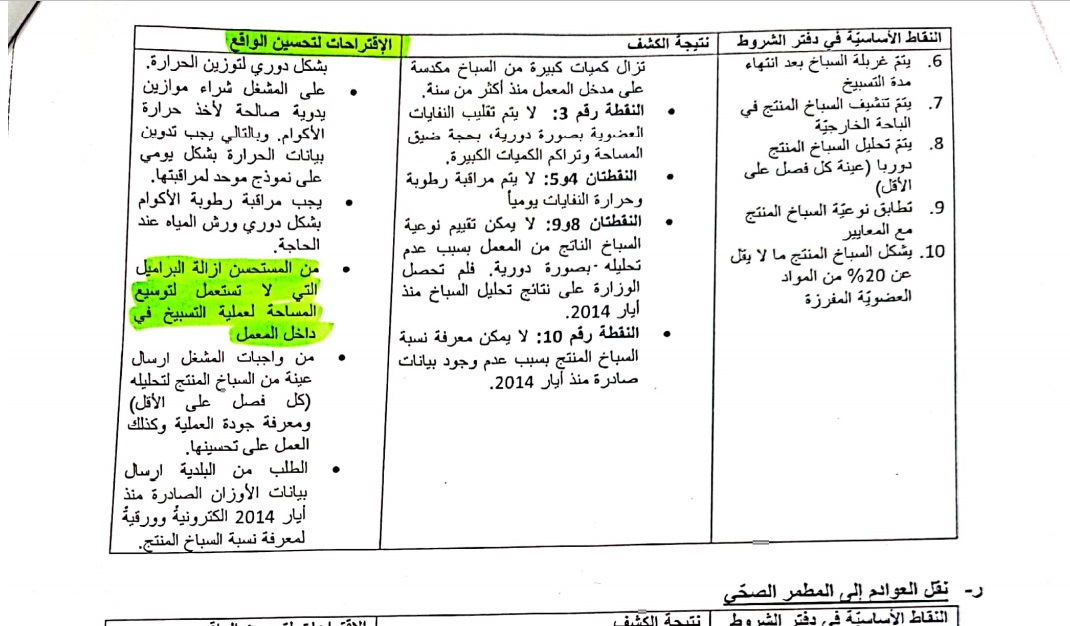 النقاط الأساسيّة في دفتر الشروط
6. يتمّ غربلة السباخ بعد انتهاء
مدة التسبيخ
7. يتمّ تنشيف السباخ المنتج في
الباحة الخارجيّة
8. يتمّ تحليل السباخ المنتج
دوريا (عينة كل فصل على
الأقل)
9. تطابق نوعيّة السباخ المنتج
مع المعايير
10. يشكل السباخ المنتج ما لا يقل
عن 20% من المواد
العضويّة المفرزة
نتيجة الكشف
تزال كميات كبيرة من السباخ مكدسة
على مدخل المعمل منذ أكثر من سنة.
• النقطة رقم 3: لا يتم تقليب النفايات
العضوية بصورة دورية، بحجة ضيق
المساحة وتراكم الكميات الكبيرة.
• النقطتان 4و5: لا يتم مراقبة رطوبة
وحرارة النفايات يومياً
• النقطتان 8و9: لا يمكن تقييم نوعية
السباخ الناتج من المعمل بسبب عدم
تحليله بصورة دورية. فلم تحصل
الوزارة على نتائج تحليل السباخ منذ
أيار 2014.
• النقطة رقم 10: لا يمكن معرفة نسبة
السباخ المنتج بسبب عدم وجود بيانات
صادرة منذ أيار 2014.
الإقتراحات لتحسين الواقع
بشكل دوري لتوزين الحرارة.
• على المشغل شراء موازين
يدوية صالحة لأخذ حرارة
الأكوام. وبالتالي يجب تدوين
بيانات الحرارة بشكل يومي
على نموذج موحد لمراقبتها.
• يجب مراقبة رطوبة الأكوام
بشكل دوري ورش المياه عند
الحاجة.
• من المستحسن ازالة البراميل
التي لا تستعمل لتوسيع
المساحة لعملية التسبيخ في
داخل المعمل
• من واجبات المشغل ارسال
عينة من السباخ المنتج لتحليله
(كل فصل على الأقل)
ومعرفة جودة العملية وكذلك
العمل على تحسينها.
• الطلب من البلدية ارسال
بيانات الأوزان الصادرة منذ
أيار 2014 الكترونيةً وورقيةً
لمعرفة نسبة السباخ المنتج.
ر- نقل العوادم إلى المطمر الصحّي
النقاط الأساسيّة في دفتر الشروط
نتيجة الكشف
الإقتراحات لتحسين الواقع